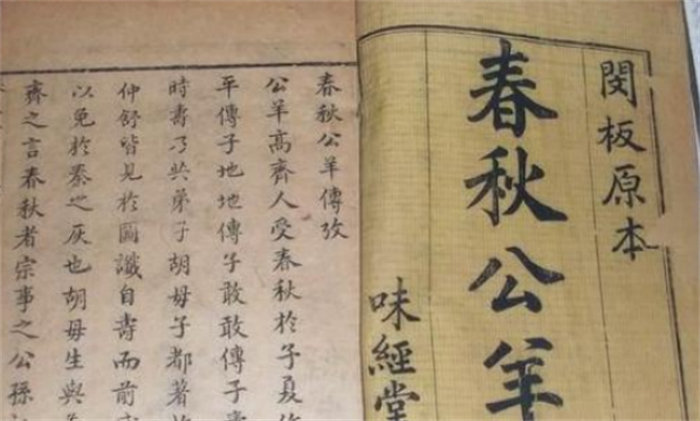 閔板原本
春秋公羊
味經堂
春秋公羊傳攷
公羊高齊人受春秋於子夏
平傳子地地傳子敢敢傳子
時壽乃共弟子胡母子都著
仲舒皆見於圖讖自壽而前
以免於秦之灰也胡母生與
齊之言春秋者宗事之公孫